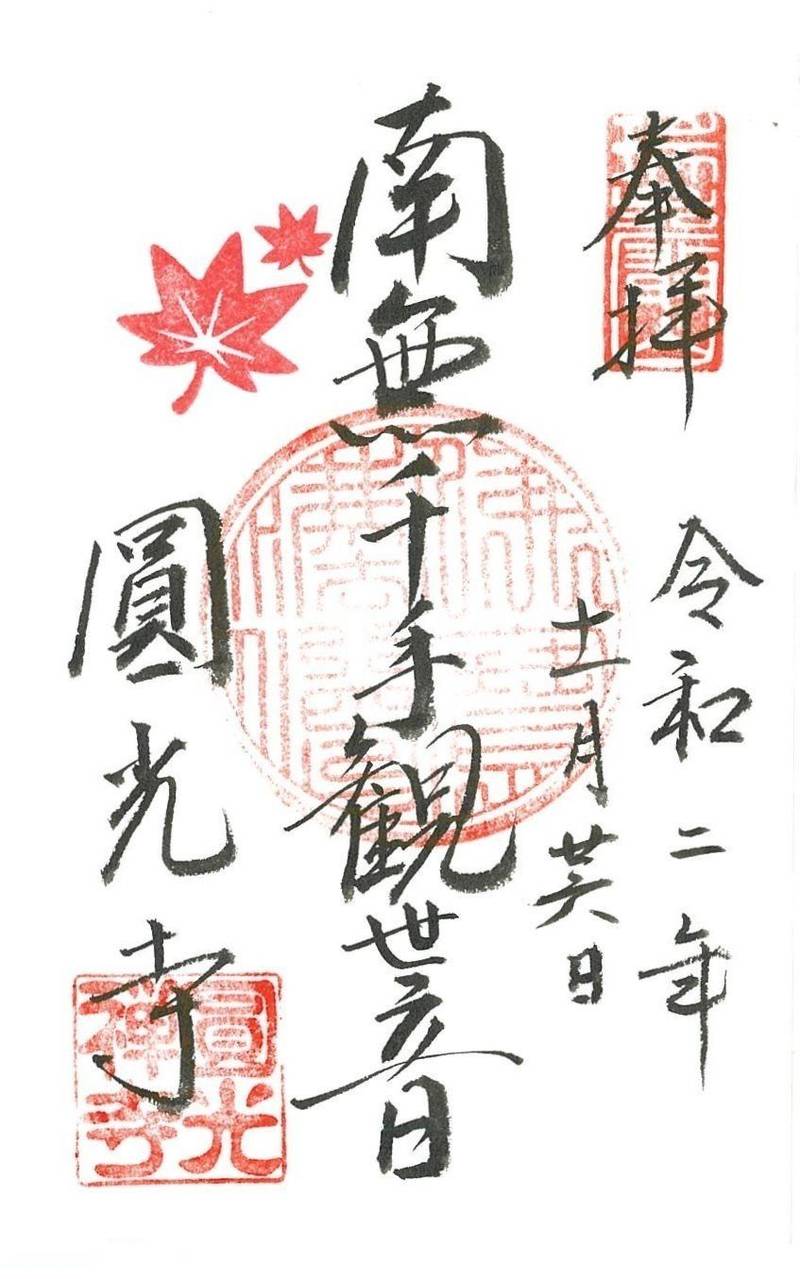 奉拝
令和二年
十一月廿六日
南無千手観世音
圓光寺
圓光
禅寺